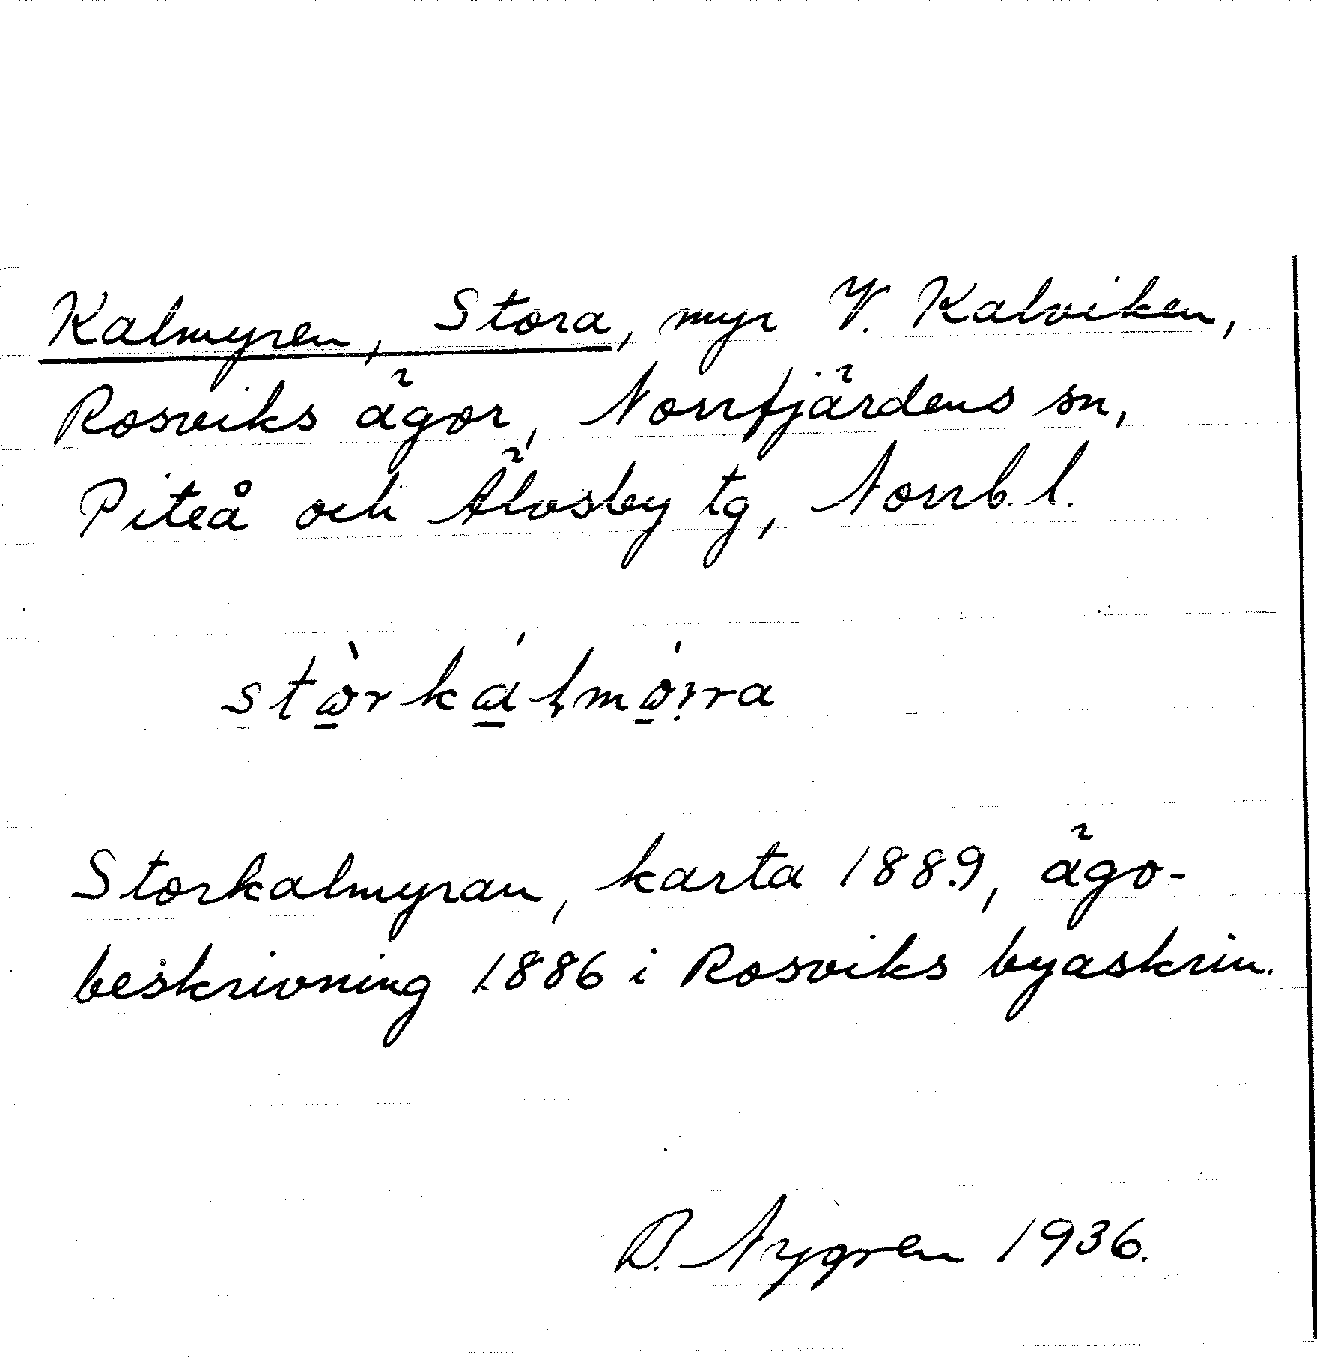 Kalmyren, Stora, myr V. Kalviken,
Rosviks ägor, Norrfjärdens sn,
Piteå och Älvsby tg, Norrb. l.
Storkalmyran, karta 1889, ägo-
beskrivning 1886 i Rosviks byaskrin.
D. Nygren 1936.